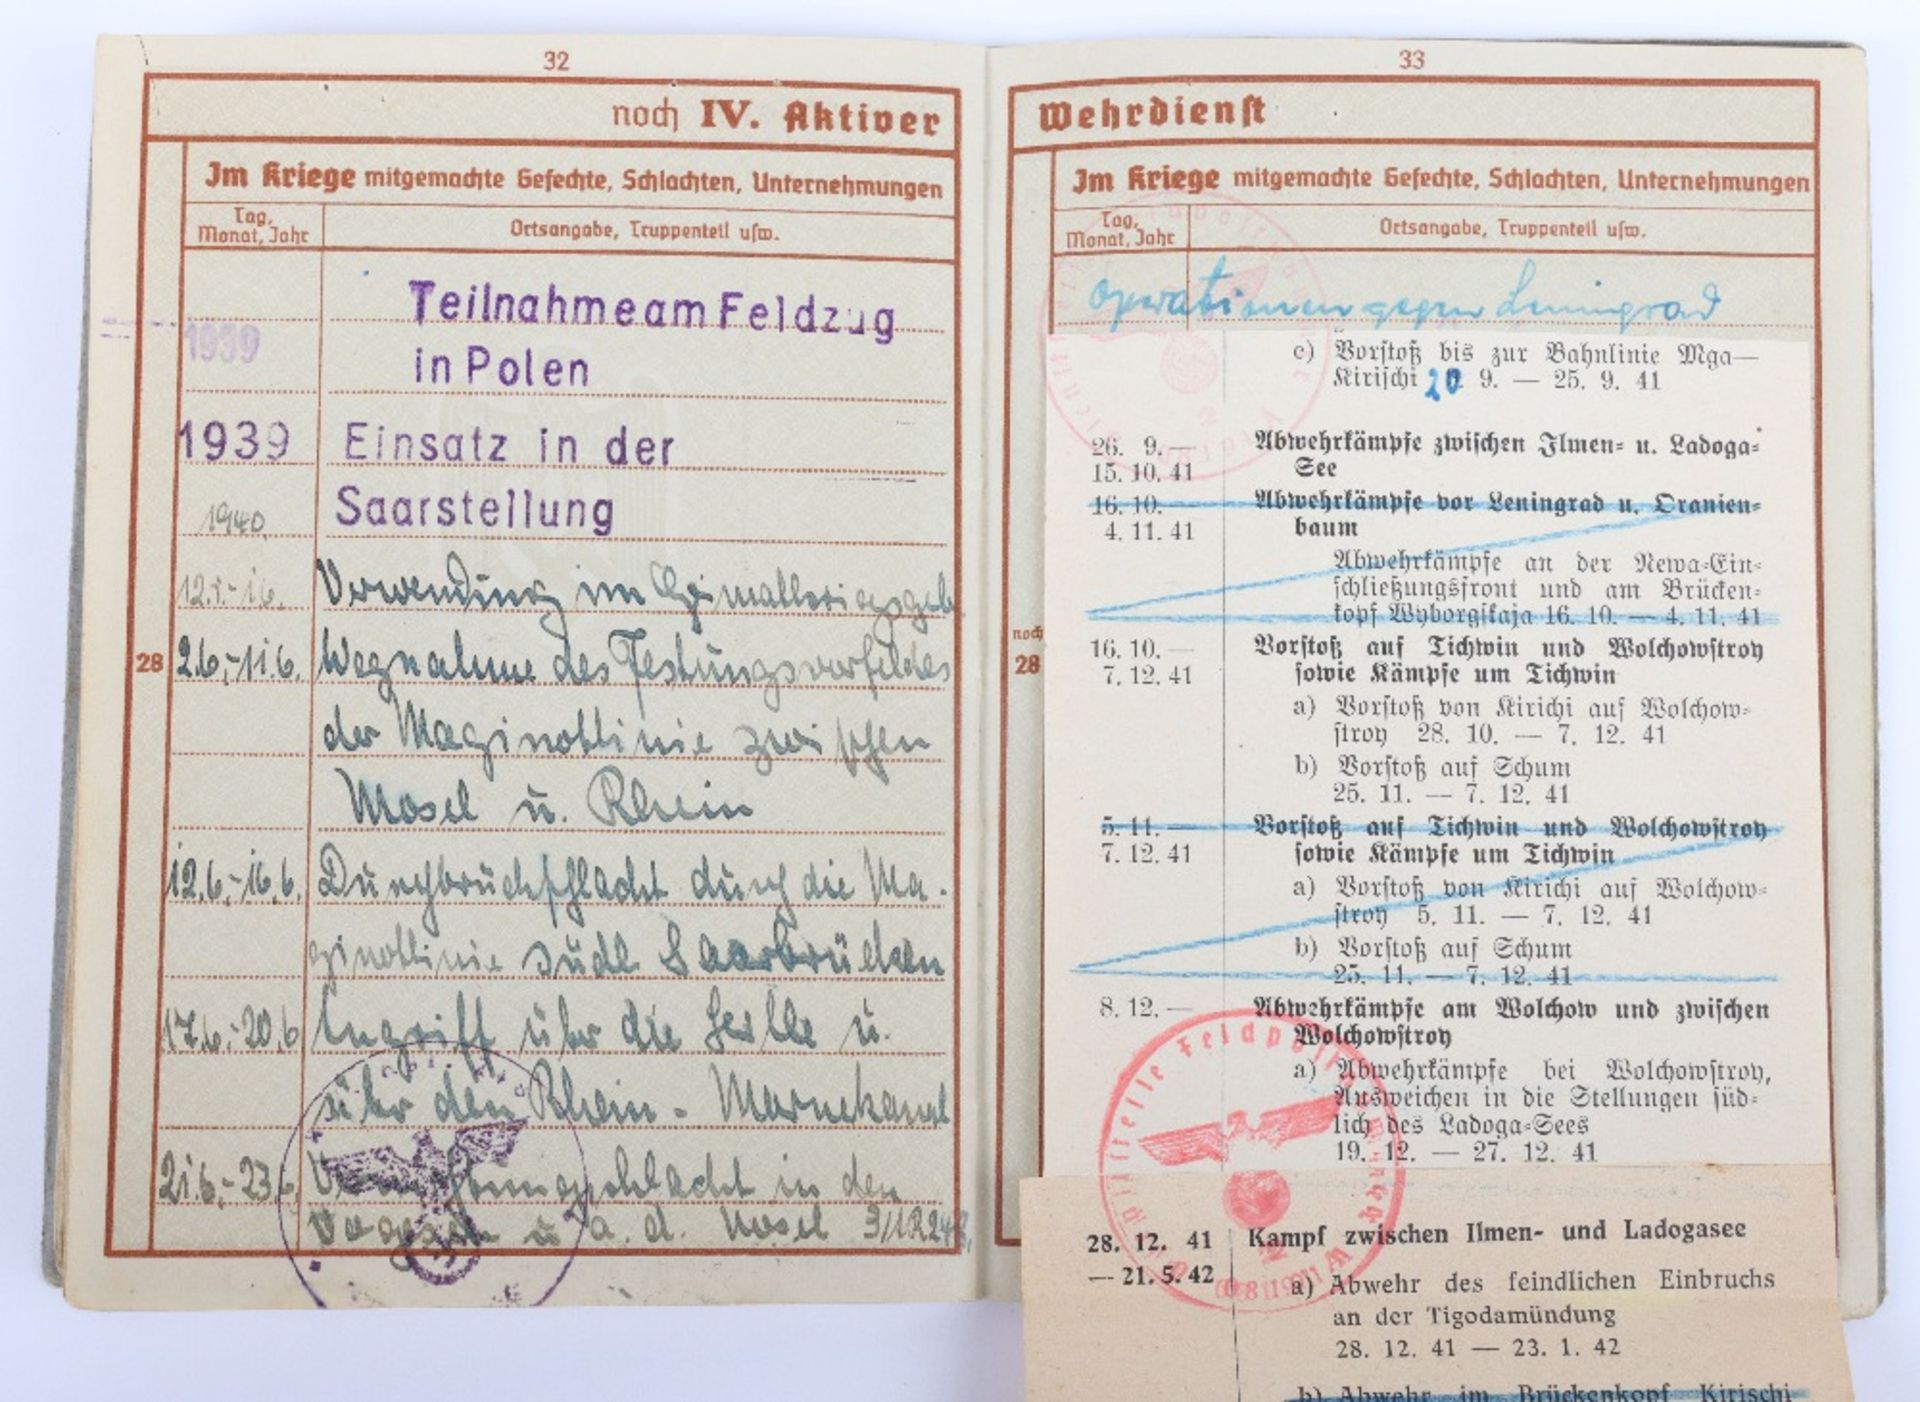 32
noch IV. Aktiver
Im Kriege mitgemachte Gefechte, Schlachten, Unternehmungen
Tag, Monat, Jahr
Ortsangabe, Truppenteil usw.
1939
Teilnahme am Feldzug
in Polen
1939 Einsatz in der
1940. Saarstellung
Verwendung im
28 2.6.-11.6. Wegnahme des Festungsvorfeldes
der Maginotlinie zwischen
Mosel u. Rhein
12.6.-16.6. Durchbruchschlacht durch die Ma-
ginotlinie südl Saarbrücken
17.6.-20.6 Angriff über die Seille u.
über den Rhein-Marnekanal
21.6.-23.6. in den
Vogesen u. a. d. Mosel
33
Wehrdienst
Im Kriege mitgemachte Gefechte, Schlachten, Unternehmungen
Tag, Monat, Jahr
Ortsangabe, Truppenteil usw.
Operationen gegen Leningrad
c) Vorstoß bis zur Bahnlinie Mga—
Kirischi 20. 9. — 25. 9. 41
26. 9. — Abwehrkämpfe zwischen Ilmen- u. Ladoga-
15. 10. 41 See
16. 10. — Abwehrkämpfe vor Leningrad u. Oranien-
4. 11. 41 baum
Abwehrkämpfe an der Newa-Ein-
schließungsfront und am Brücken-
kopf Wyborgskaja 16. 10. — 4. 11. 41
noch
28
16. 10. — Vorstoß auf Tichwin und Wolchowstroy
7. 12. 41 sowie Kämpfe um Tichwin
a) Vorstoß von Kirichi auf Wolchow-
stroy 28. 10. — 7. 12. 41
b) Vorstoß auf Schum
25. 11. — 7. 12. 41
5. 11. — Vorstoß auf Tichwin und Wolchowstroy
7. 12. 41 sowie Kämpfe um Tichwin
a) Vorstoß von Kirichi auf Wolchow-
stroy 5. 11. — 7. 12. 41
b) Vorstoß auf Schum
25. 11. — 7. 12. 41
8. 12. — Abwehrkämpfe am Wolchow und zwischen
Wolchowstroy
a) Abwehrkämpfe bei Wolchowstroy,
Ausweichen in die Stellungen süd-
lich des Ladoga-Sees
19. 12. — 27. 12. 41
28. 12. 41 Kampf zwischen Ilmen- und Ladogasee
— 21. 5. 42 a) Abwehr des feindlichen Einbruchs
an der Tigodamündung
28. 12. 41 — 23. 1. 42
b) Abwehr im Brückenkopf Kirischi